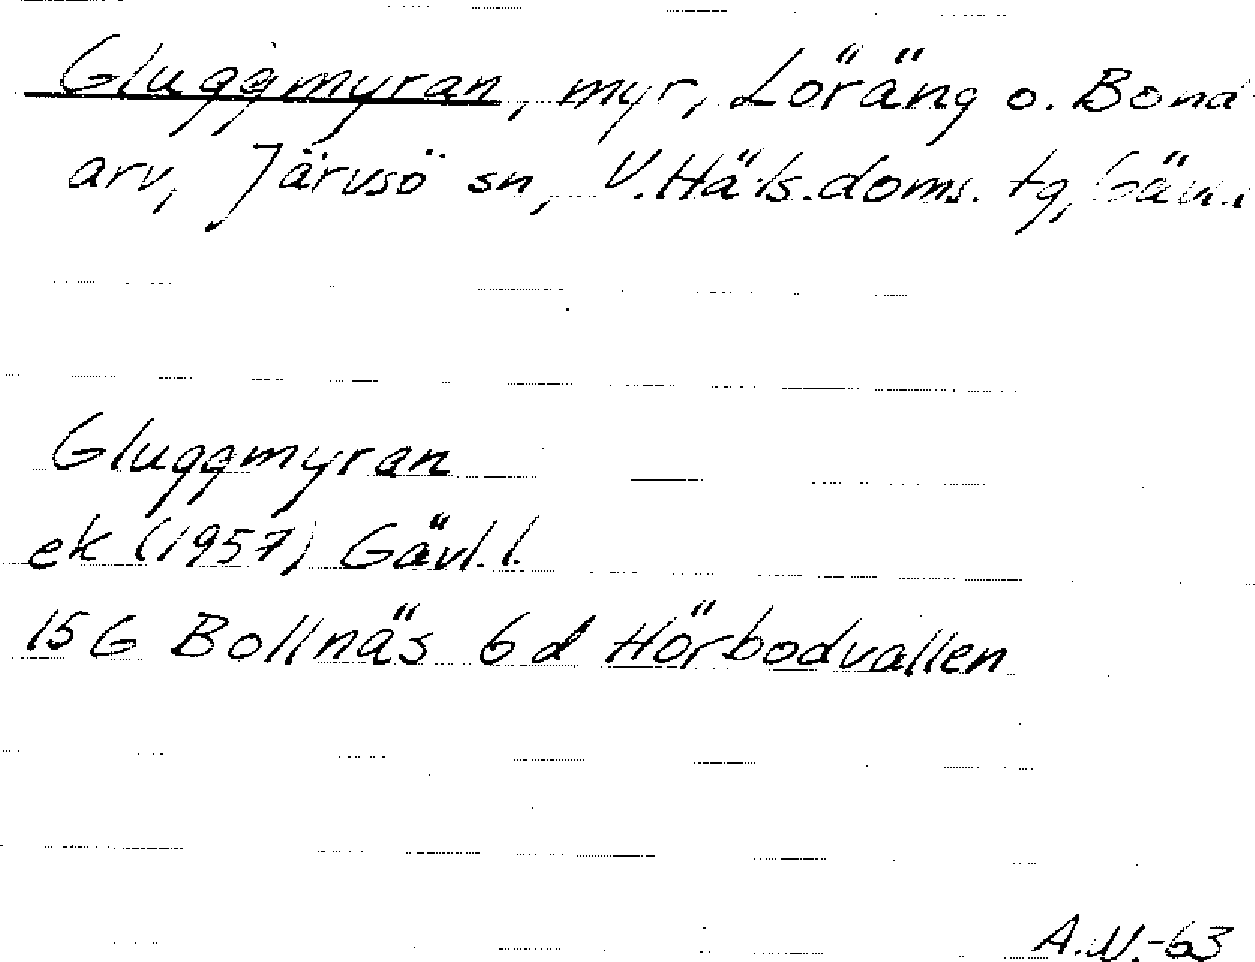 Gluggmyran, myr, Löräng o. Bond
arv, Järvsö sn, V.Häls.doms. tg, Gävl.l
Gluggmyran
ek (1957) Gävl.l.
15 G Bollnäs 6 d Hörbodvallen
A.N.-63